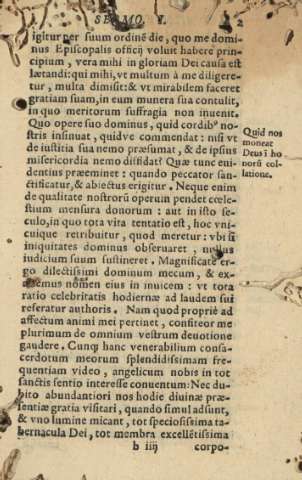 SERMO. I. 2
igitur per suum ordinē die, quo me domi-
nus Episcopalis officij voluit habere prin-
cipium, vera mihi in gloriam Dei causa est
lætandi: qui mihi, vt multum à me diligere-
tur, multa dimisit: & vt mirabilem faceret
gratiam suam, in eum munera sua contulit,
in quo meritorum suffragia non inuenit.
Quo opere suo dominus, quid cordibꝰ no-
stris insinuat, quidve commendat: nisi vt
de iustitia sua nemo præsumat, & de ipsius
misericordia nemo diffidat? Quæ tunc eui-
dentius præeminet: quando peccator san-
ctificatur, & abiectus erigitur. Neque enim
de qualitate nostrorū operum pendet cœle-
stium mensura donorum: aut in isto se-
culo, in quo tota vita tentatio est, hoc vni-
cuique retribuitur, quod meretur: vbi si
iniquitates dominus obseruaret, nullus
iudicium suum sustineret. Magnificate er-
go dilectissimi dominum mecum, & ex-
nomen eius in inuicem: vt tota
ratio celebritatis hodiernæ ad laudem sui
referatur authoris. Nam quod propriè ad
affectum animi mei pertinet, confiteor me
plurimum de omnium vestrum deuotione
gaudere. Cunqȝ hanc venerabilium consa-
cerdotum meorum splendidissimam fre-
quentiam video, angelicum nobis in tot
sanctis sentio interesse conuentum: Nec du-
bito abundantiori nos hodie diuinæ præ-
sentiæ gratia visitari, quando simul adsunt,
& vno lumine micant, tot speciosissima ta-
bernacula Dei, tot membra excellētissima
b iiij corpo-
Quid nos
moneat
Deꝰ ī ho
norū col-
latione.